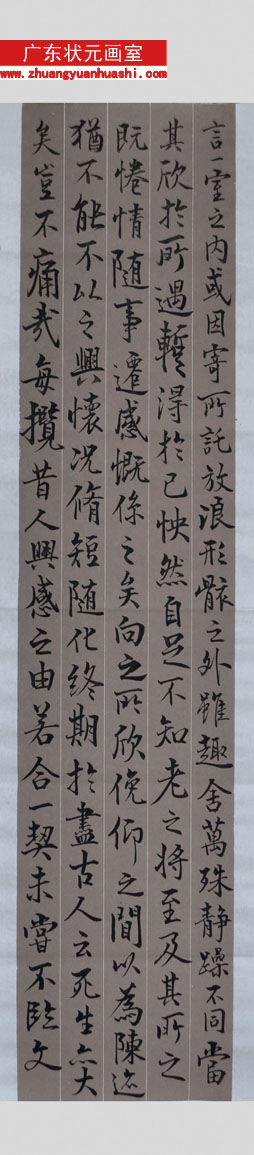 广东状元画室
www.zhuangyuanhuashi.com
言一室之内或因寄所託放浪形骸之外雖趣舍萬殊静躁不同當
其欣於所遇暫得於己怏然自足不知老之将至及其所之
既惓情随事遷感慨係之矣向之所欣俛仰之間以為陳迹
猶不能不以之興懷况脩短随化終期於盡古人云死生亦大
矣豈不痛哉每攬昔人興感之由若合一契未嘗不臨文